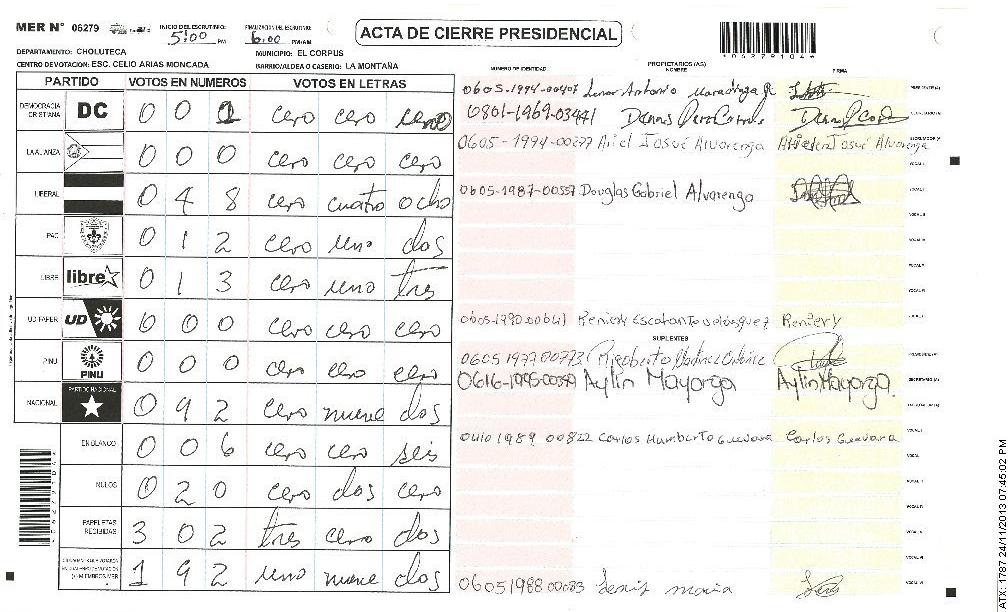 MER N° 06279 INICIO DEL ESCRUTINIO: 5:00 PM FINALIZACIÓN DEL ESCRUTINIO: 6:00 PM/AM
ACTA DE CIERRE PRESIDENCIAL
*06279104*
DEPARTAMENTO: CHOLUTECA MUNICIPIO: EL CORPUS
CENTRO DE VOTACION: ESC. CELIO ARIAS MONCADA BARRIO/ALDEA O CASERIO: LA MONTAÑA
PARTIDO VOTOS EN NUMEROS VOTOS EN LETRAS
DEMOCRACIA CRISTIANA DC 0 0 cero cero
LA ALIANZA 0 0 0 cero cero cero
LIBERAL 0 4 8 cero cuatro ocho
PAC 0 1 2 cero uno dos
LIBRE libre 0 1 3 cero uno tres
UD-FAPER UD 0 0 0 cero cero cero
PINU PINU 0 0 0 cero cero cero
NACIONAL PARTIDO NACIONAL 0 9 2 cero nueve dos
EN BLANCO 0 0 6 cero cero seis
NULOS 0 2 0 cero dos cero
PAPELETAS RECIBIDAS 3 0 2 tres cero dos
1 9 2 uno nueve dos
NÚMERO DE IDENTIDAD PROPIETARIOS (AS) NOMBRE FIRMA
0605-1994-00407 Antonio
0801-1969-03441 Dennis
0605-1994-00277 Ariel Josué Alvarenga
0605-1987-00557 Douglas Gabriel Alvarenga
0605-1990-00641 Reniery Escalante Velasquez Reniery
SUPLENTES
0605 1977 00773 Rigoberto
0616-1995-00359 Aylin Mayorga Aylin Mayorga
0410 1989 00822 Carlos Humberto Guevara Carlos Guevara
0605 1988 00083 maria
ATX: 1787 24/11/2013 07:45:02 PM